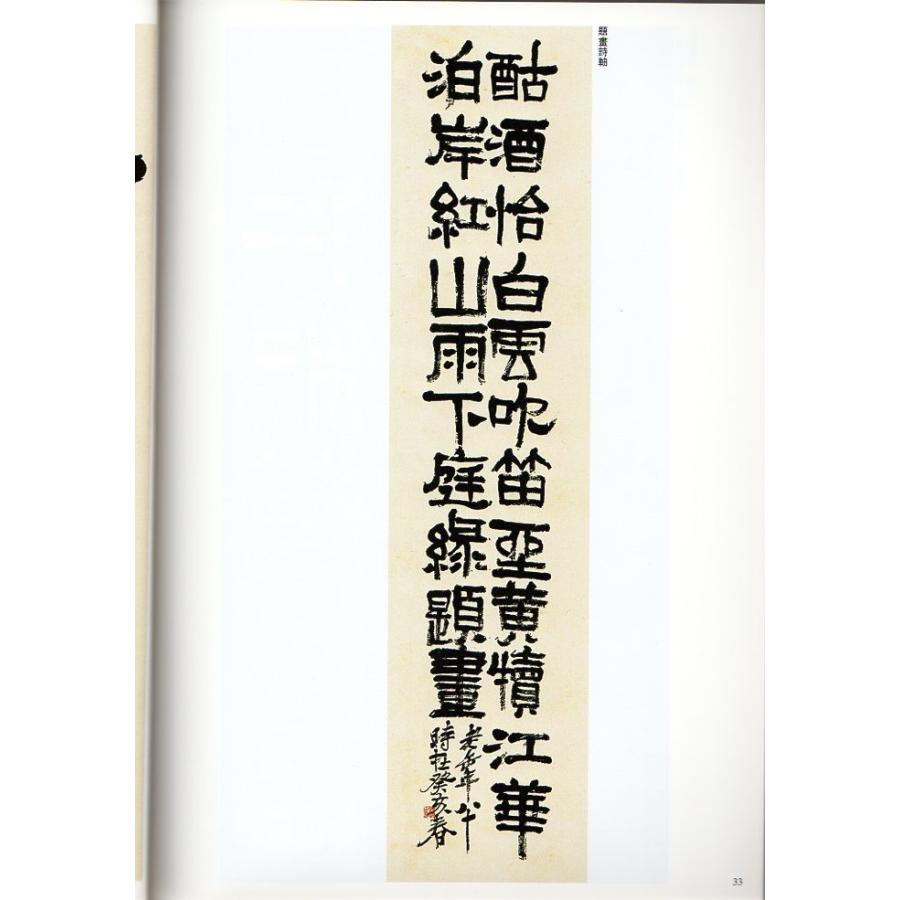 題畫詩軸
酤酒怡白雲吹笛至黃犢江華
泊岸紅山雨下庭緣題畫
老缶年八十
時在癸亥春
33